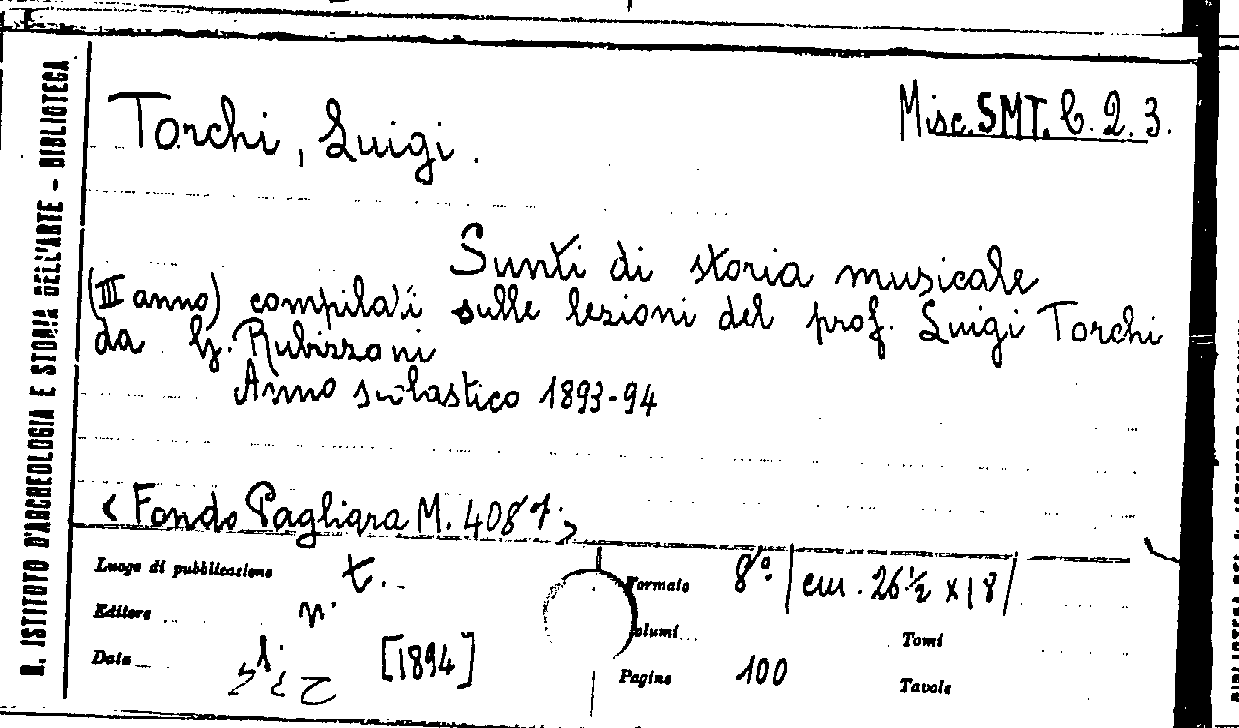 R. ISTITUTO D'ARCHEOLOGIA E STORIA DELL'ARTE - BIBLIOTECA
Torchi, Luigi.
Misc. SMT. C. 2. 3.
Sunti di storia musicale
(III anno) compilati sulle lezioni del prof. Luigi Torchi
da G. Rubizzani
Anno scolastico 1893-94
< Fondo Pagliara M. 4087. >
Luogo di pubblicazione t.
Formato 8º. | cm. 26½ x 18 |
Editore n.
Volumi Tomi
Data [1894]
Pagine 100 Tavole